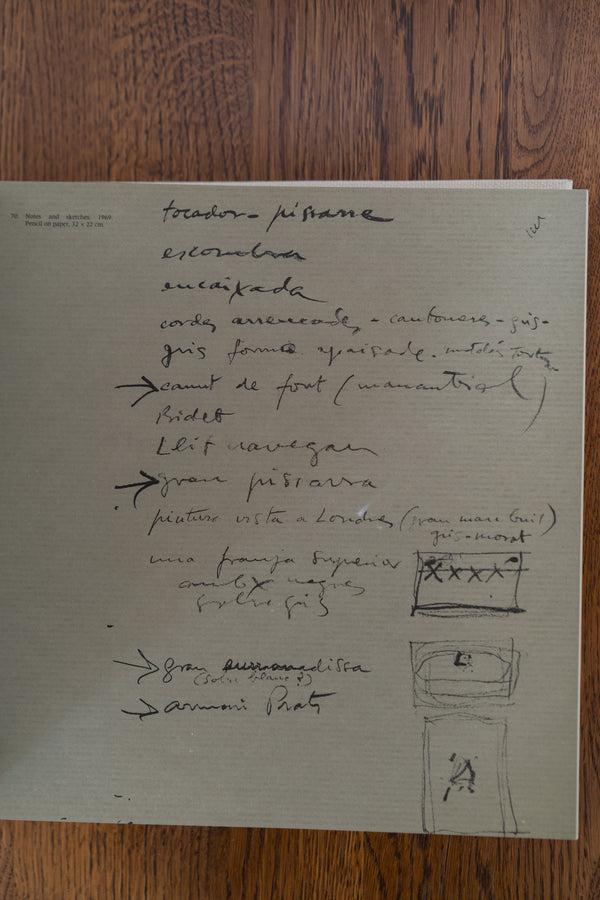 70. Notes and sketches. 1969.
Pencil on paper, 32 × 22 cm.
tocador - pissarra
escombra
encaixada
cordes arrencades - cantoneres - gris -
gris forma apaisada.
canut de font (manantial)
Bidet
Llit navegant
gran pissarra
pintura vista a Londres (gran marc buit)
gris-morat
una franja superior
amb X negres
sobre gris
XXXX
gran dissa
(sobre blanc?)
armari Prats
A